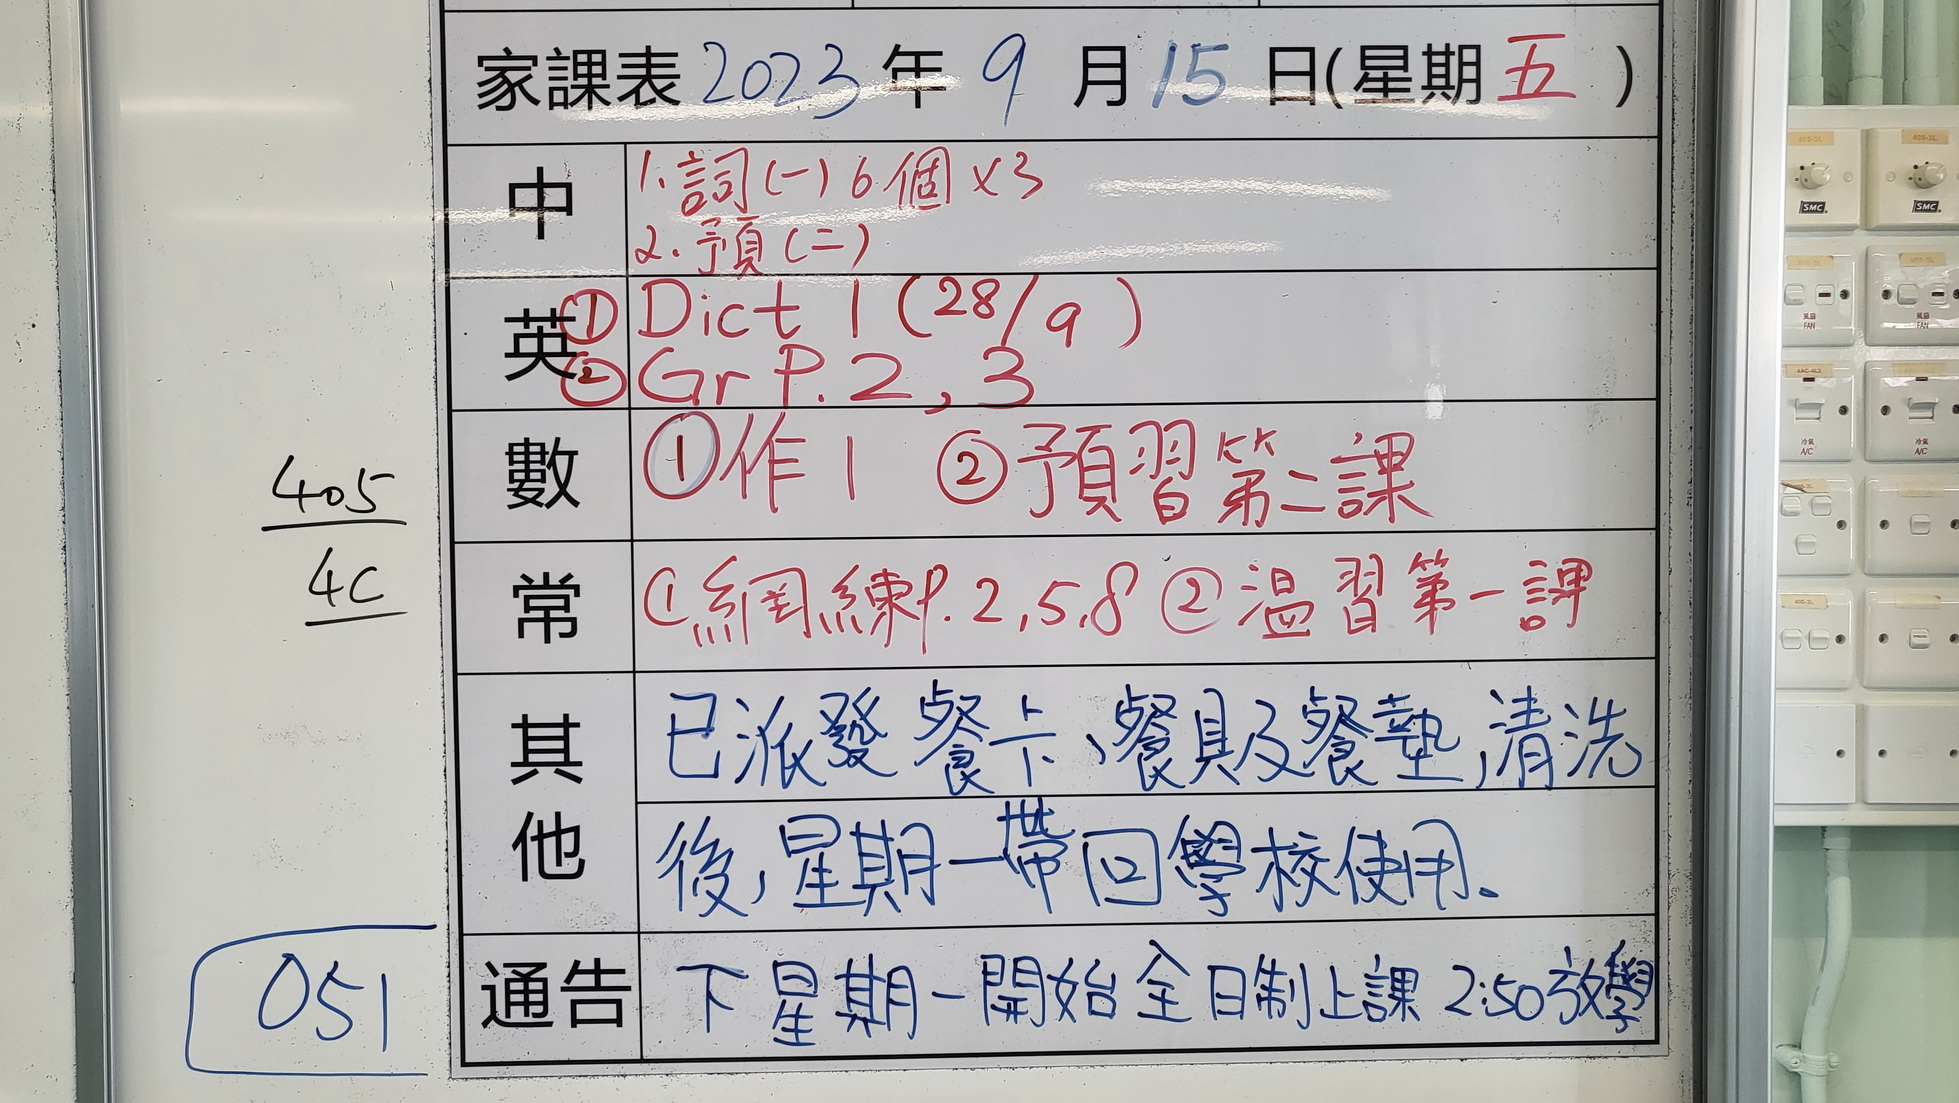 家課表 2023 年 9 月 15 日(星期 五 )
中
1. 詞(一) 6 個 x3
2. 預(二)
英
① Dict 1 (28/9)
② Gr P. 2, 3
數
① 作 1 ② 預習第二課
常
① 網練 P. 2, 5, 8 ② 温習第一課
其他
已派發餐卡、餐具及餐墊,清洗
後,星期一帶回學校使用。
通告
下星期一開始全日制上課 2:50放學
405
4C
051
405-3L
405-3L
SMC
SMC
風扇
FAN
風扇
FAN
冷氣
A/C
冷氣
A/C